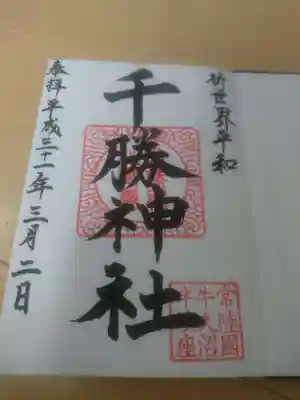 祈世界平和
千勝神社
奉拝 平成三十一年三月二日
常陸國
牛久沼